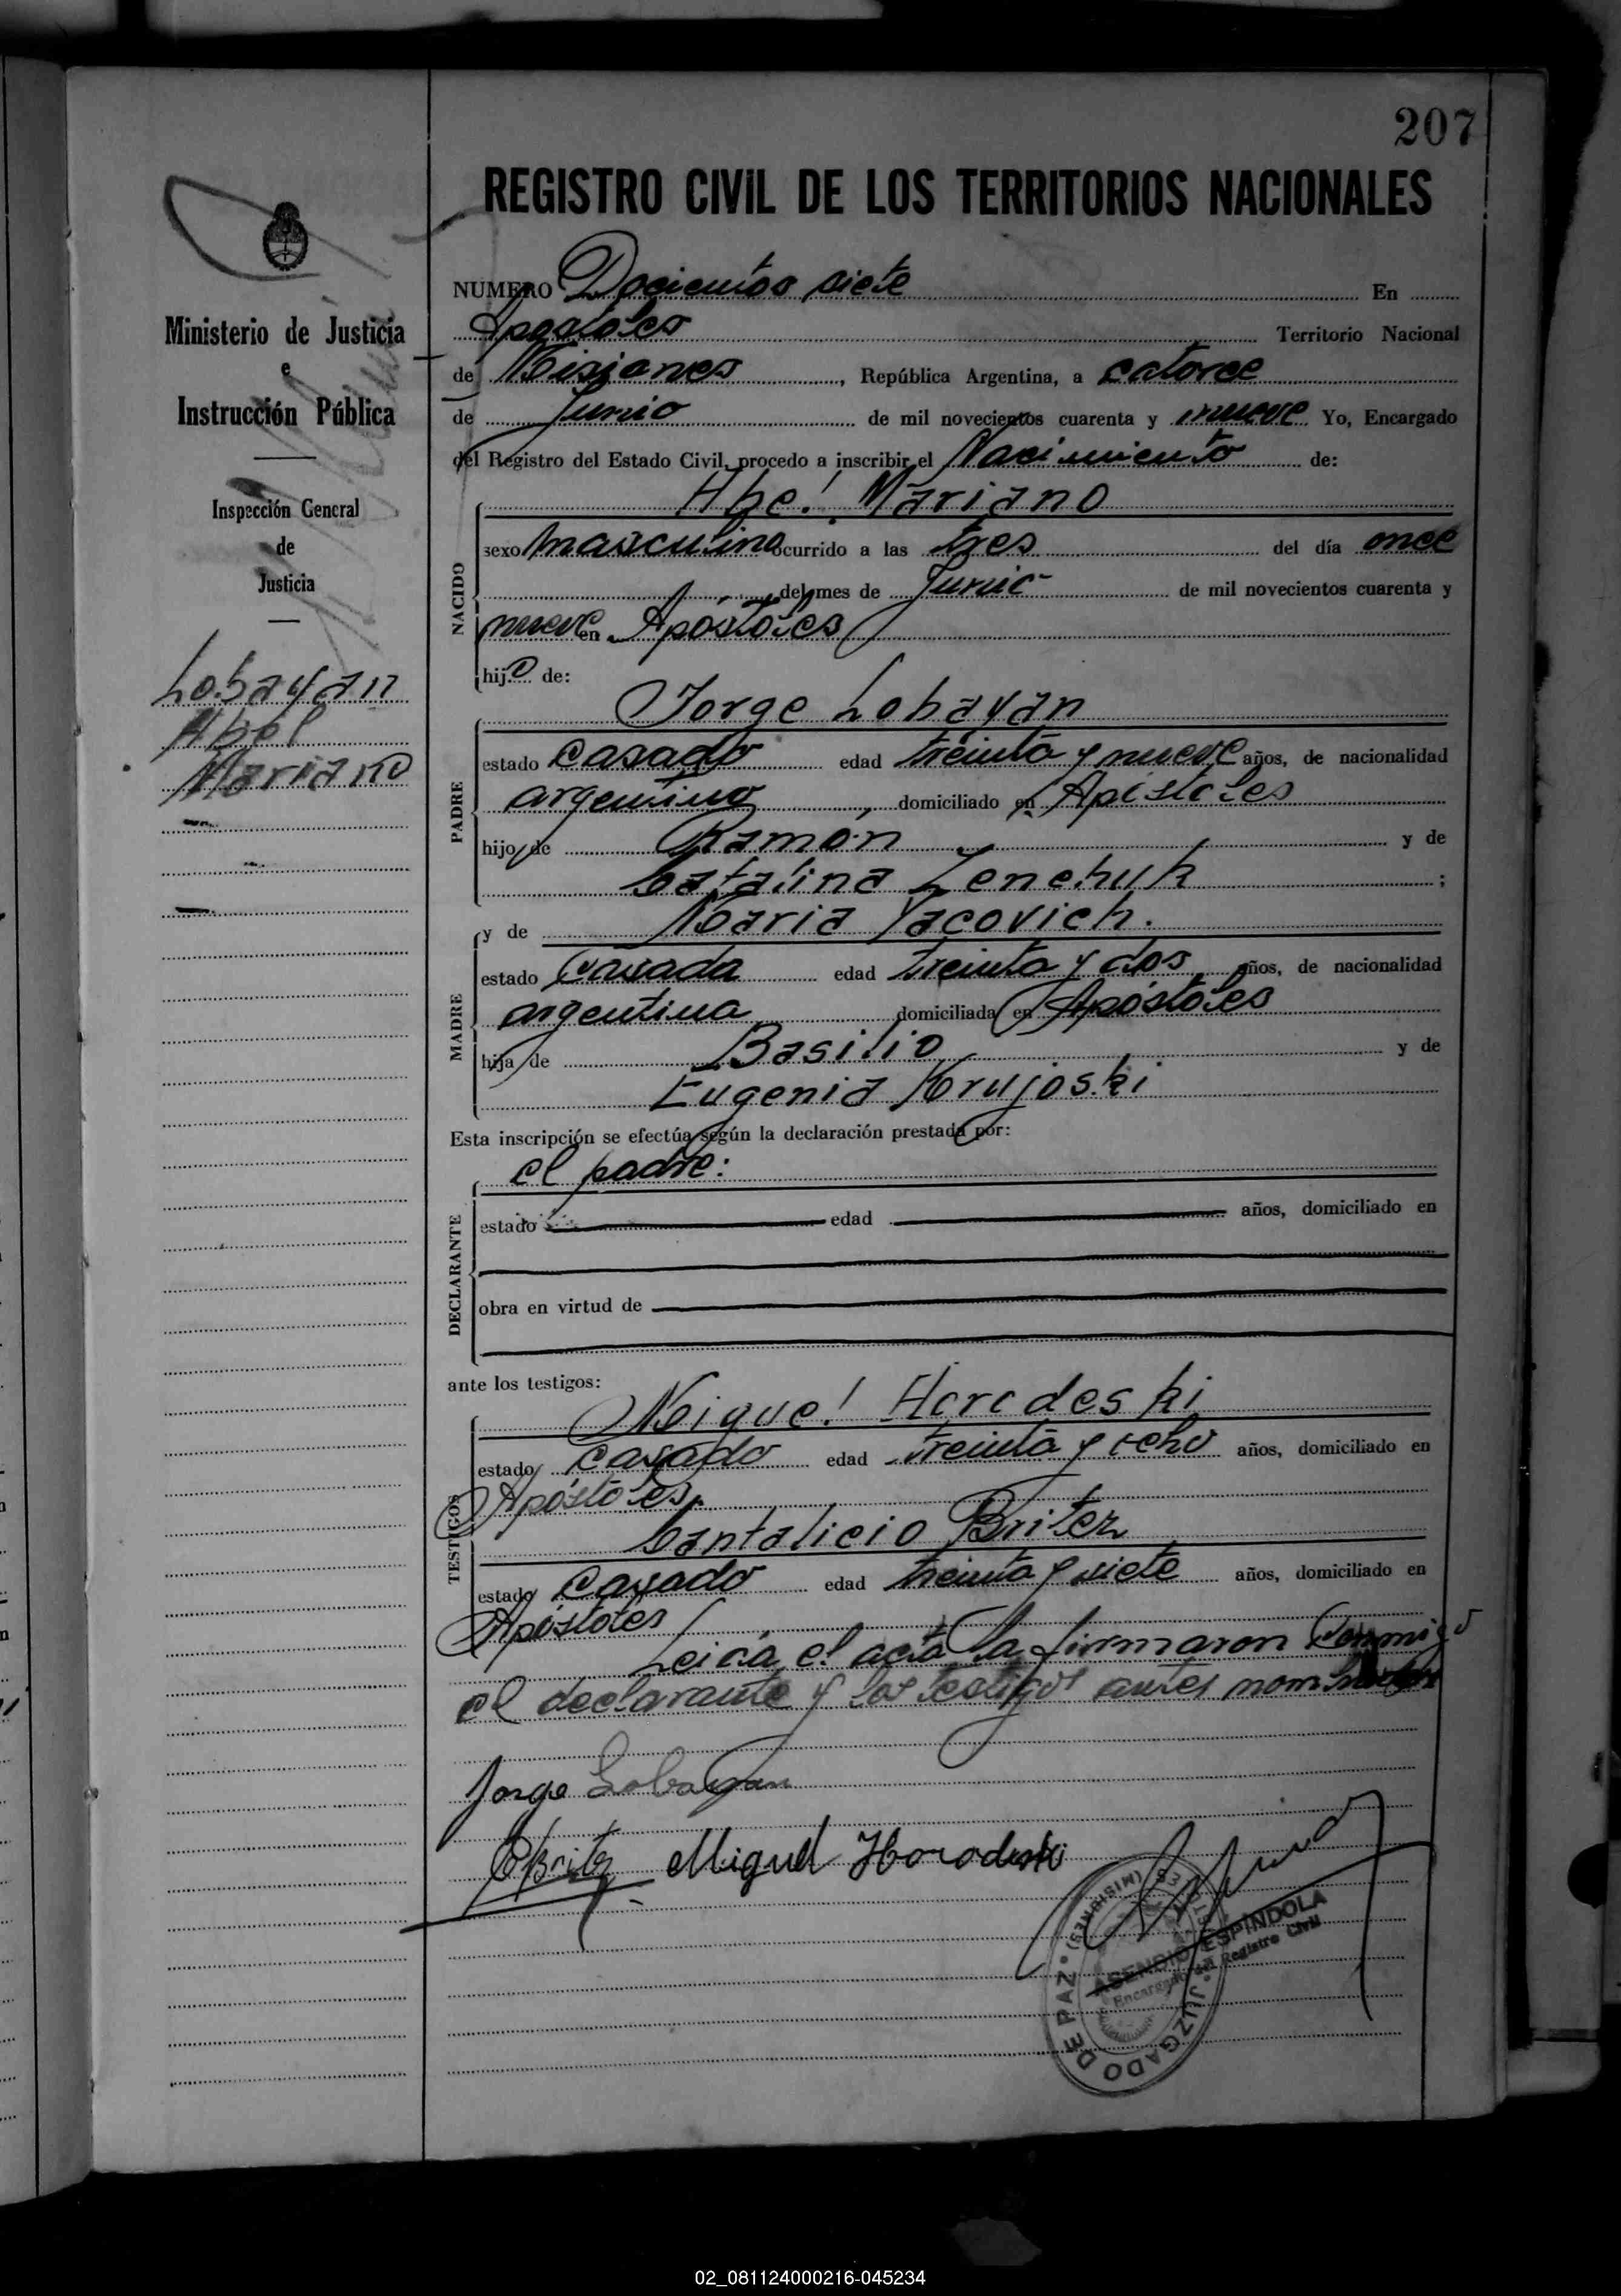 207
REGISTRO CIVIL DE LOS TERRITORIOS NACIONALES
NUMERO Docientos siete En
Apostoles Territorio Nacional
de Misiones, República Argentina, a catorce
de Junio de mil novecientos cuarenta y nueve Yo, Encargado
del Registro del Estado Civil, procedo a inscribir el Nacimiento de:
Abel Mariano
NACIDO
sexo masculino ocurrido a las tres del día once
del mes de Junio de mil novecientos cuarenta y
nueve en Apóstoles
hijo de:
Jorge Lobayan
PADRE
estado casado edad treinta y nueve años, de nacionalidad
argentino, domiciliado en Apóstoles
hijo de Ramón y de
Catalina Zenchuk;
y de Maria Yacovich.
MADRE
estado casada edad treinta y dos años, de nacionalidad
argentina domiciliada en Apóstoles
hija de Basilio y de
Eugenia Krujoski
Esta inscripción se efectúa según la declaración prestada por:
el padre:
DECLARANTE
estado edad años, domiciliado en
obra en virtud de
ante los testigos:
Miguel Horodeski
TESTIGOS
estado casado edad treinta y ocho años, domiciliado en
Apóstoles.
Cantalicio Britez
estado casado edad treinta y siete años, domiciliado en
Apóstoles
Leida el acta la firmaron conmigo
el declarante y los testigos antes nombrados
Jorge Lobayan
CBritz Miguel Horodeski
ASENDIO ESPINDOLA
Encargado del Registro Civil
JUZGADO DE PAZ (MISIONES)
Ministerio de Justicia
e
Instrucción Pública
Inspección General
de
Justicia
Lobayan
Abel
Mariano
02_081124000216-045234